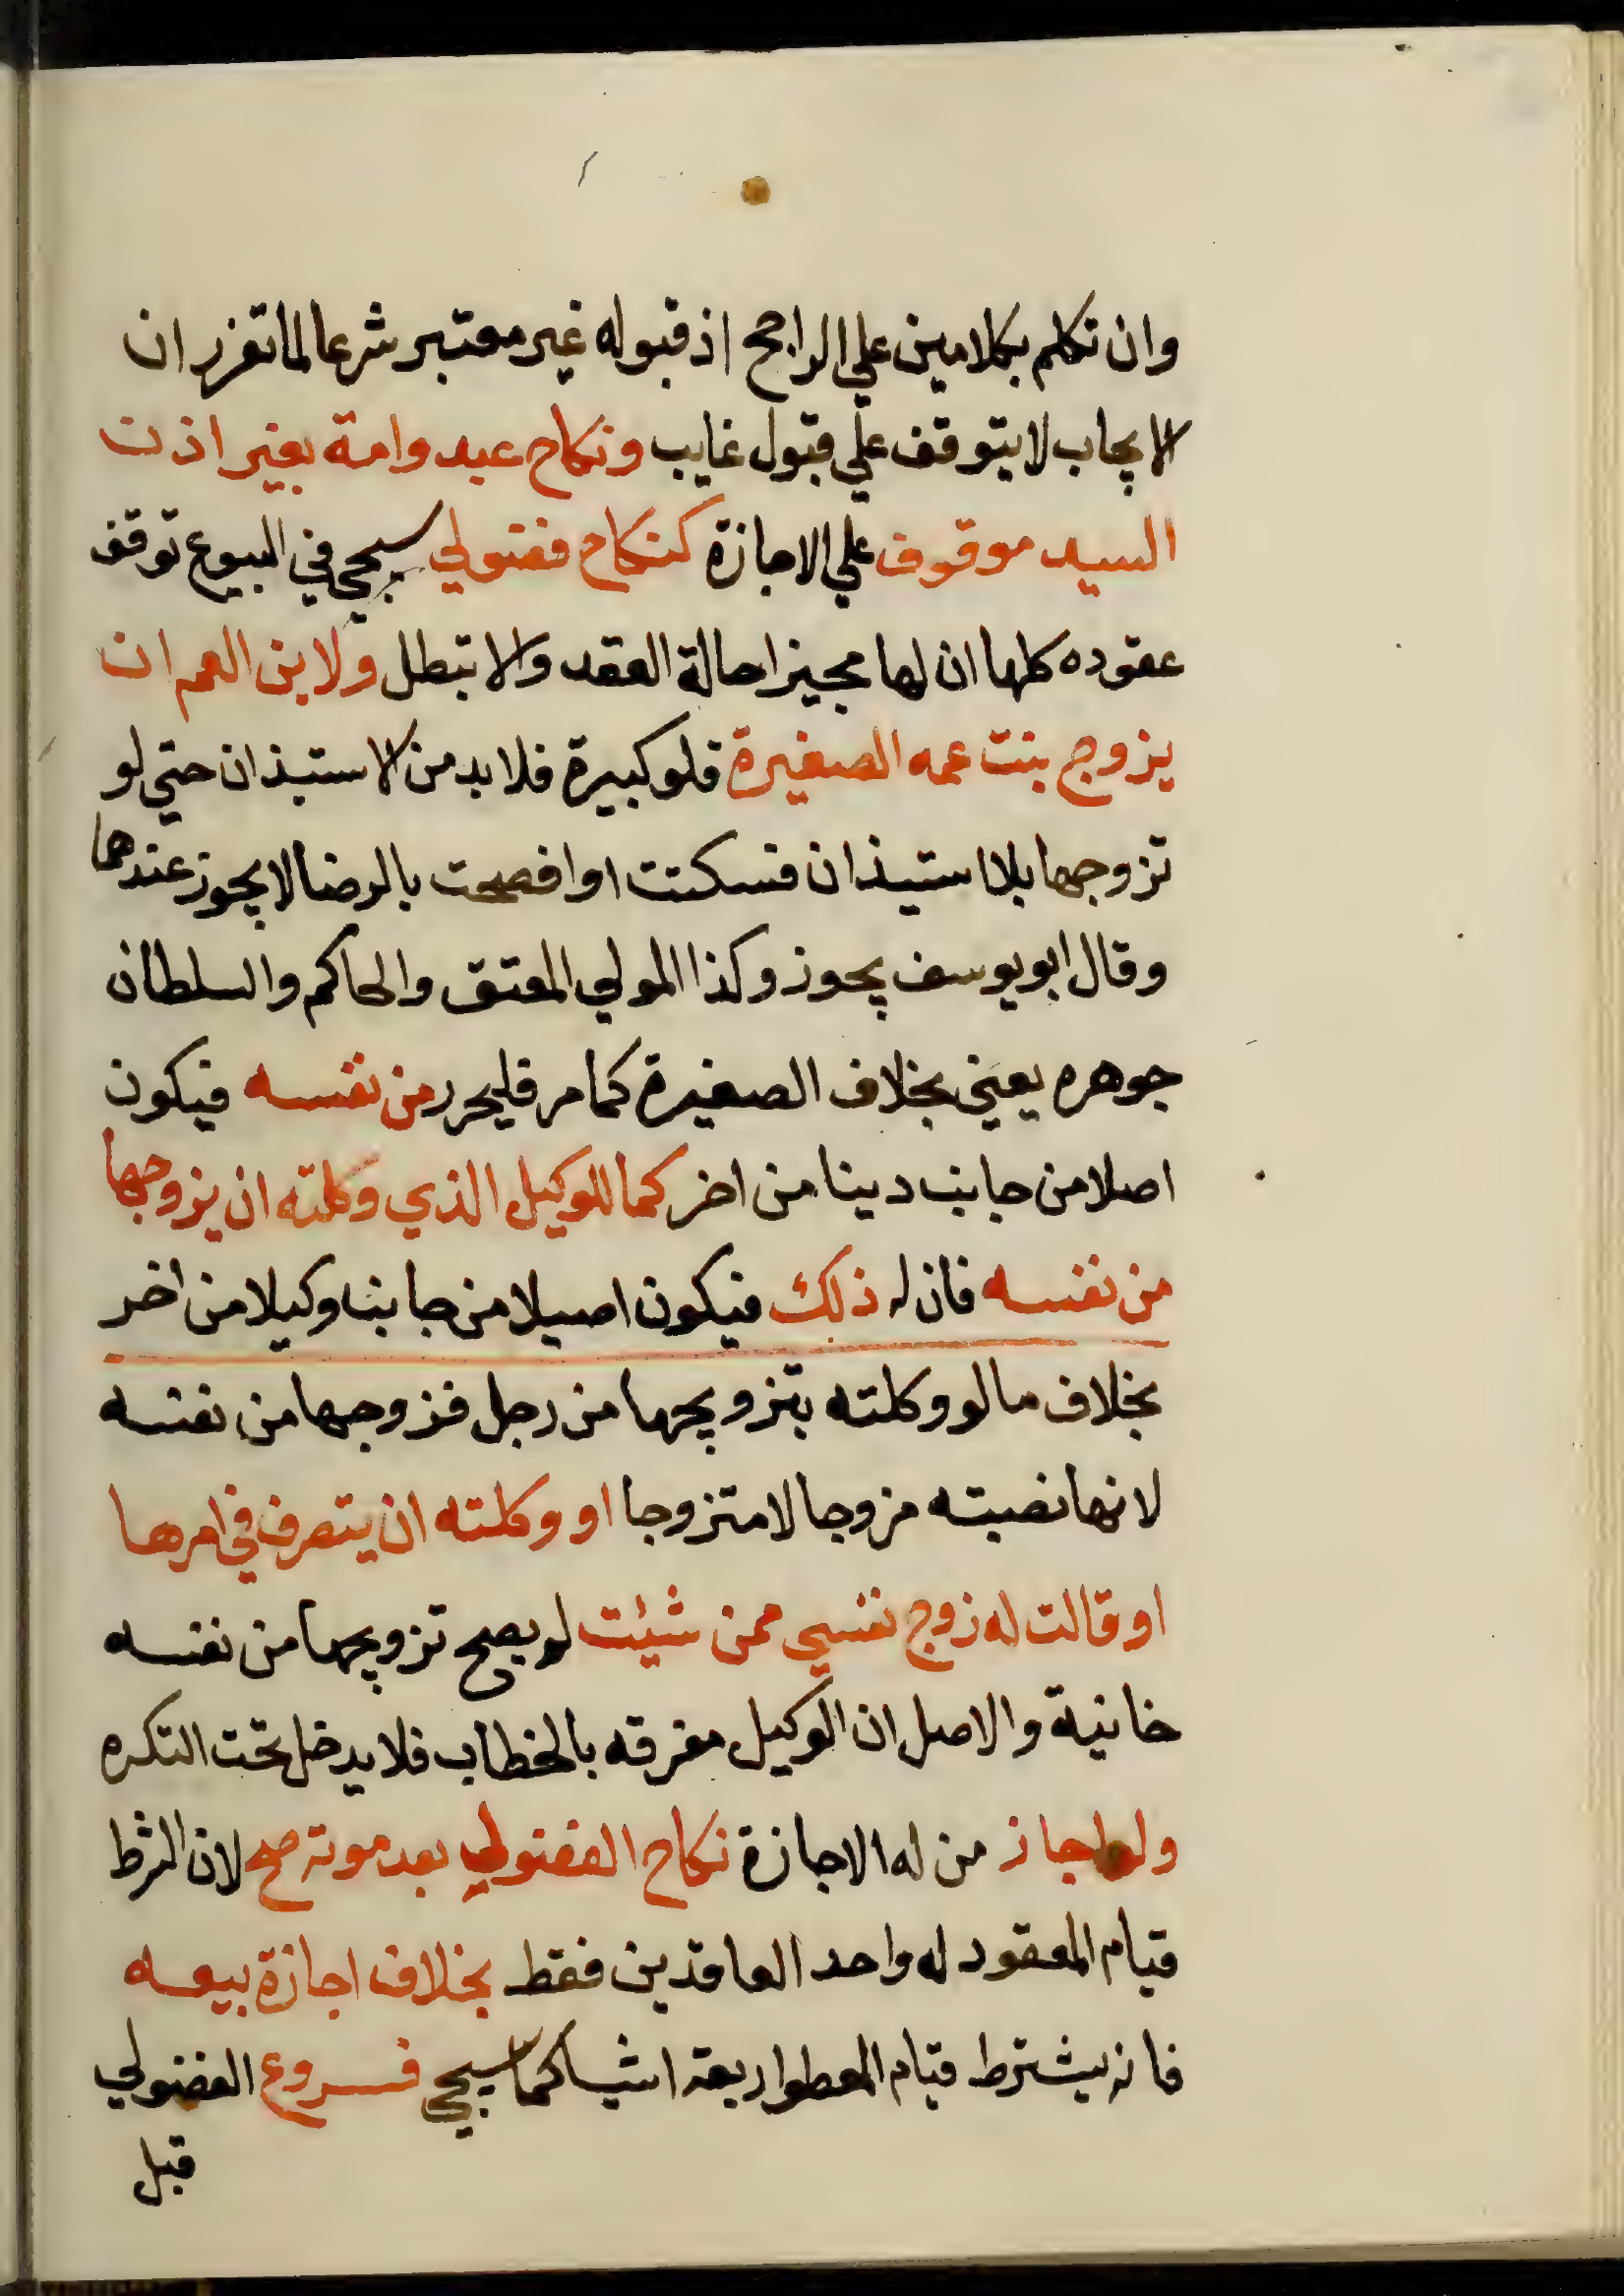 وان تكلم بكلامين علي الراجح اذ قبوله غير معتبر شرعا لما تقرر ان
الايجاب لا يتوقف علي قبول غايب ونكاح عبد وامة بغير اذن
السيد موقوف علي الاجازة كنكاح فضولي سيجي في البيوع توقف
عقوده كلها ان لها مجيزا حالة العقد والا تبطل ولابن العم ان
يزوج بنت عمه الصغيرة فلو كبيرة فلا بد من الاستيذان حتي لو
تزوجها بلا استيذان فسكتت او افصحت بالرضا لا يجوز عندهما
وقال ابو يوسف يجوز وكذا المولي المعتق والحاكم والسلطان
جوهره يعني بخلاف الصغيرة كما مر فليحرر من نفسه فيكون
اصلا من جانب دينا من اخر كما للوكيل الذي وكلته ان يزوجها
من نفسه فان له ذلك فيكون اصيلا من جانب وكيلا من اخر
بخلاف ما لو وكلته بتزويجها من رجل فزوجها من نفسه
لانها نصبته مزوجا لا متزوجا او وكلته ان يتصرف في امرها
او قالت له زوج نفسي ممن شيئت لم يصح تزويجها من نفسه
خانية والاصل ان الوكيل معرفه بالخطاب فلا يدخل تحت النكره
ولو اجاز من له الاجازة نكاح الفضولي بعد موته صح لان الشرط
قيام المعقود له واحد العاقدين فقط بخلاف اجازة بيعه
فانه يشترط قيام المعطوا ربعة اشيا كما سيجي فروع الفضولي
قبل